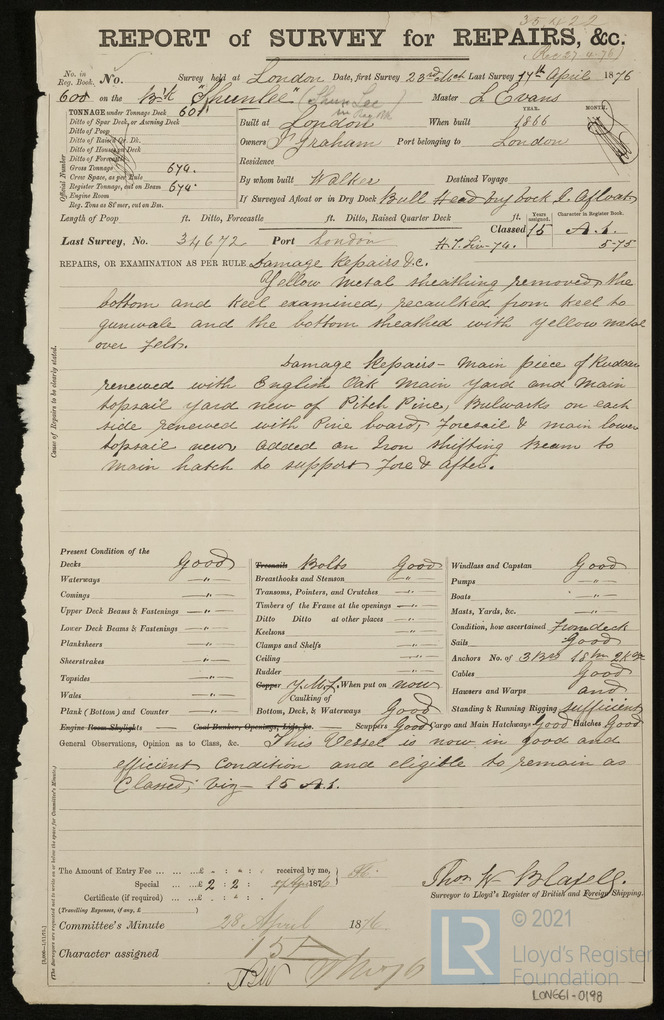 35,422
REPORT of SURVEY for REPAIRS, &c.
(Rec 27.4.76)
No. in Reg. Book. No. Survey held at London Date, first Survey 23rd Last Survey 17th April 1876
600 on the Bk "Shunlee" (Shun Lee in Reg Bk) Master L Evans
TONNAGE under Tonnage Deck 601
Ditto of Spar Deck, or Awning Deck
Ditto of Poop
Ditto of Raised Qr. Dk.
Ditto of House on Deck
Ditto of Forecastle
Gross Tonnage 674.
Crew Space, as per Rule
Register Tonnage, cut on Beam 674.
Engine Room
Reg. Tons as St'mer, cut on Bm.
Official Number
YEAR. MONTH.
Built at London When built 1866
Owners Graham Port belonging to London
Residence
By whom built Walker Destined Voyage
If Surveyed Afloat or in Dry Dock Bull Head dry dock & Afloat
Length of Poop ft. Ditto, Forecastle ft. Ditto, Raised Quarter Deck ft.
Years assigned. Character in Register Book.
Classed 15 A.1.
Last Survey, No. 34672 Port London H.T. Liv-74. 5-75
REPAIRS, OR EXAMINATION AS PER RULE, Damage Repairs &c.
Yellow metal sheathing removed, the
bottom and keel examined, recaulked from keel to
gunwale and the bottom sheathed with yellow metal
over felt.
Damage Repairs - Main piece of Rudder
renewed with English Oak Main yard and main
topsail yard new of Pitch Pine, Bulwarks on each
side renewed with Pine board, Foresail & main lower
topsail new added an Iron shifting Beam to
main hatch to support Fore & after.
Cause of Repairs to be clearly stated.
Present Condition of the
Decks Good
Waterways — " —
Comings — " —
Upper Deck Beams & Fastenings — " —
Lower Deck Beams & Fastenings — " —
Planksheers — " —
Sheerstrakes — " —
Topsides — " —
Wales — " —
Plank (Bottom) and Counter — " —
Treenails Bolts Good
Breasthooks and Stemson — " —
Transoms, Pointers, and Crutches — " —
Timbers of the Frame at the openings — " —
Ditto Ditto at other places — " —
Keelsons — " —
Clamps and Shelfs — " —
Ceiling — " —
Rudder — " —
Copper Y.M.F. When put on now
Caulking of
Bottom, Deck, & Waterways Good
Windlass and Capstan Good
Pumps — " —
Boats — " —
Masts, Yards, &c. — " —
Condition, how ascertained From deck
Sails Good
Anchors No. of 3 Brs 1 Stm 2 Kgs
Cables Good
Hawsers and Warps and
Standing & Running Rigging sufficient
Engine Room Skylights — Coal Bunker, Openings, Lids, &c. — Scuppers Good Cargo and Main Hatchways Good Hatches Good
General Observations, Opinion as to Class, &c. This Vessel is now in good and
efficient condition and eligible to remain as
Classed; viz - 15 A.1.
(The Surveyors are requested not to write on or below the space for Committee's Minute.)
The Amount of Entry Fee ... £ - : - : received by me,
Special ... £ 2 : 2 : 1876
Certificate (if required) ... £ - : - :
(Travelling Expenses, if any, £ )
Thos W Blaxell.
Surveyor to Lloyd's Register of British and Foreign Shipping.
Committee's Minute 28 April 1876
Character assigned 15A
LR
© 2021
Lloyd's Register
Foundation
LON661-0198